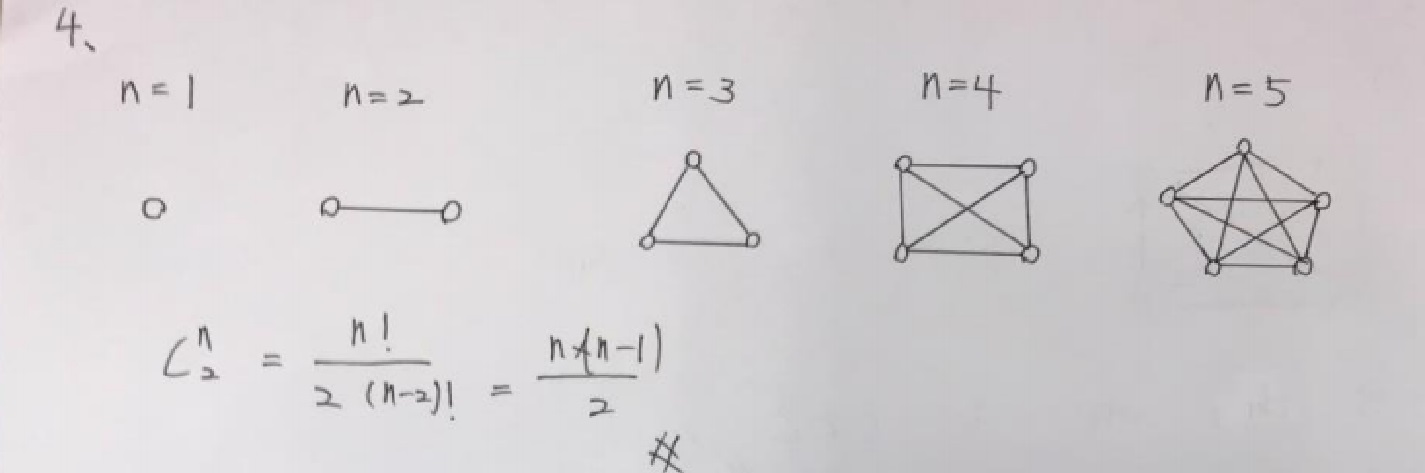 4、
n=1 n=2 n=3 n=4 n=5
C^n_2 = n! / 2 (n-2)! = n(n-1) / 2
#